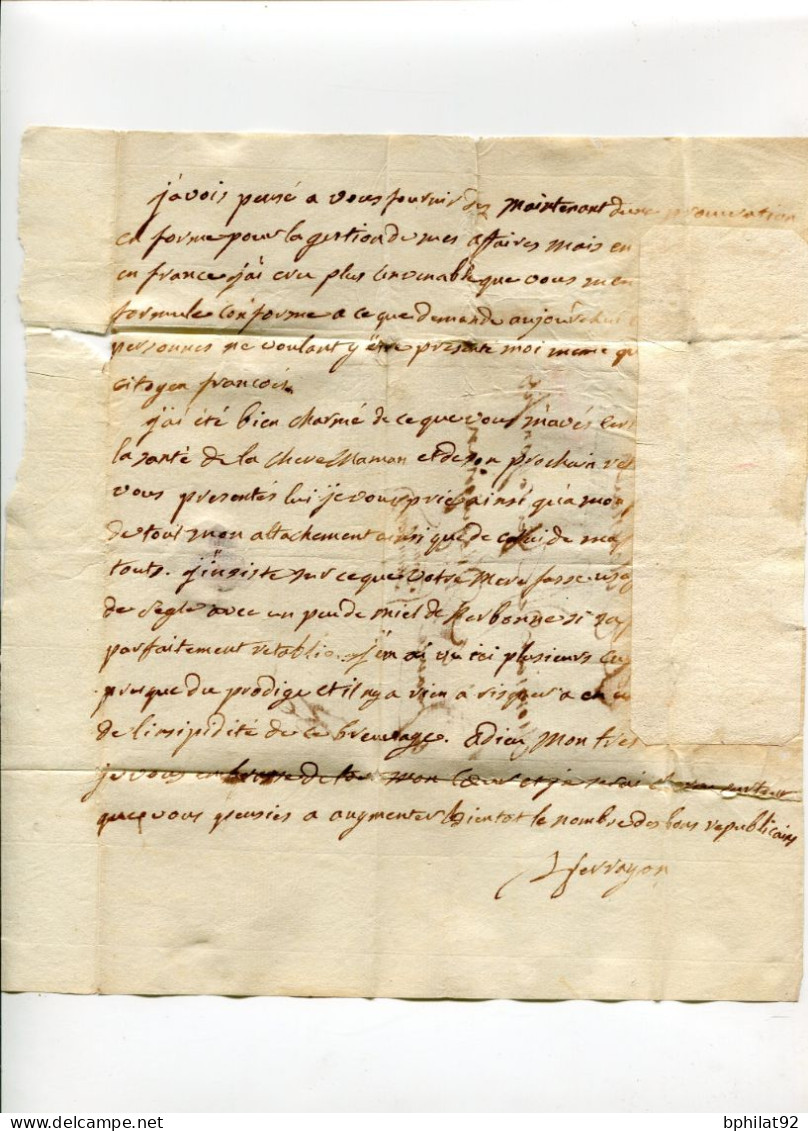 j'avois pensé a vous fournir des maintenant d'une procuration
en forme pour la gestion de mes affaires mais en
en france j'ai cru plus convenable que vous m'en
formule conforme a ce que demande aujourd'hui
personnes ne voulant y être présenté moi meme qu
citoyen francois.
j'ai été bien charmé de ce que vous m'avés
la santé de la chere Maman et de son prochain
vous presentés lui je vous prie ainsi qu'a mon
de tout mon attachement ainsi que de celui de ma
touts. j'insiste sur ce que votre Mere fasse
de regle avec un peu de miel de Narbonne si
parfaitement retablie. j'en ai vu ici plusieurs
presque du prodige et il n'y a rien a risquer a
de l'insipidité de ce breuvage. Adieu Mon tres
je vous embrasse de tout mon coeur et je serai
que vous pensiés a augmenter bientot le nombre des bons republicains
ferrayon
bphilat92